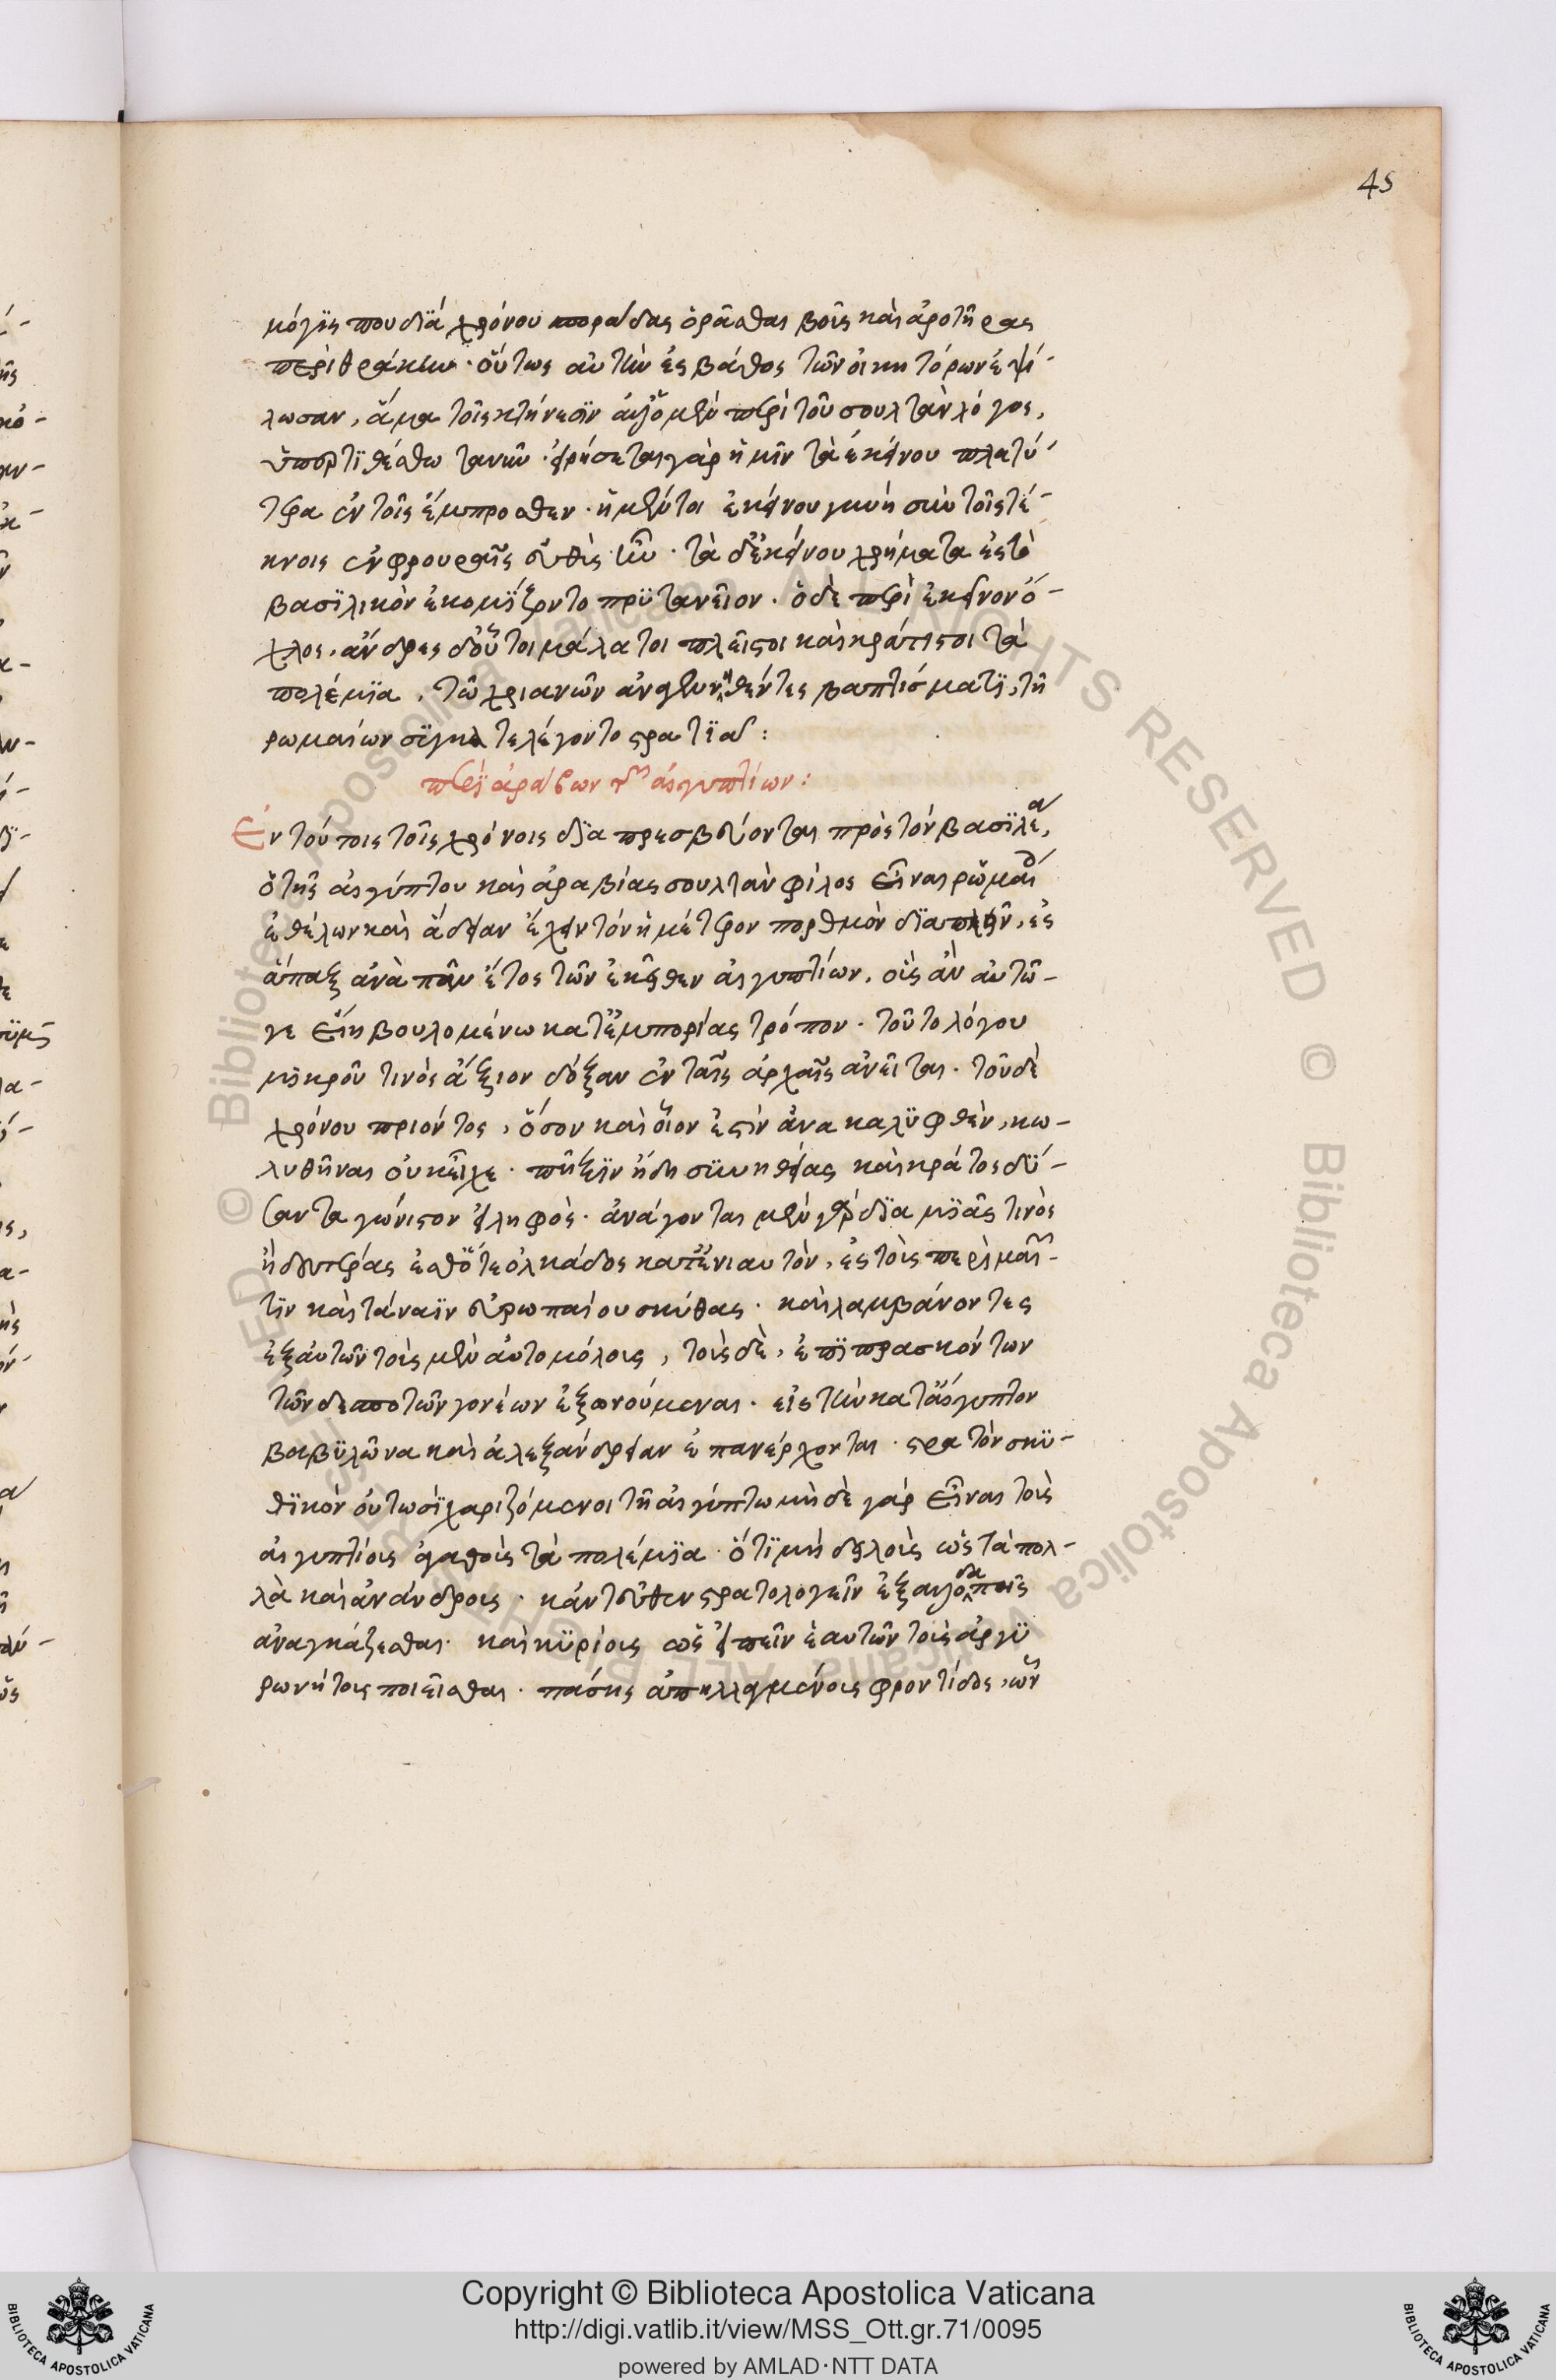 45
μόγις που διὰ χρόνου σποράδας ὁρᾶσθαι βοῦς καὶ ἀροτῆρας
περὶ θράκην· οὕτως αὐτὴν ἐς βάθος τῶν οἰκητόρων ἐψί-
λωσαν, ἅμα τοῖς κτήνεσιν ἀλλ' ὁ μὲν περὶ τοῦ σουλτὰν λόγος,
ὑπερτιθέσθω τανῦν· εἰρήσεται γὰρ ἡμῖν τὰ ἐκείνου πλατύ-
τερα ἐν τοῖς ἔμπροσθεν· ἡ μέντοι ἐκείνου γυνὴ σὺν τοῖς τέ-
κνοις ἐν φρουραῖς εὐθὺς ἦν· τὰ δ' ἐκείνου χρήματα ἐς τὸ
βασιλικὸν ἐκομίζοντο πρυτανεῖον. ὁ δὲ περὶ ἐκεῖνον ὄ-
χλος, ἄνδρες δ' οὗτοι μάλα τοι πλεῖστοι καὶ κράτιστοι τὰ
πολέμια, τῶ χριανῶν ἀναγεννηθέντες βαπτίσματι, τῆ
ρωμαίων συγκατελέγοντο στρατιᾶ:
περὶ ἀράβων τῶν αἰγυπτίων:
Ἐν τούτοις τοῖς χρόνοις διαπρεσβεύονται πρὸς τὸν βασιλέα,
ὁ τῆς αἰγύπτου καὶ ἀραβίας σουλτὰν φίλος εἶναι ρωμαίοις
ἐθέλων καὶ ἄδειαν ἔχειν τὸν ἡμέτερον πορθμὸν διαπλεῖν, εἰς
ἅπαξ ἀνὰ πᾶν ἔτος τῶν ἐκεῖθεν αἰγυπτίων, οἷς ἂν αὐτῶ-
γε εἴη βουλομένω κατ' ἐμπορίας τρόπον. τοῦτο λόγου
μικροῦ τινὸς ἄξιον δόξαν ἐν ταῖς ἀρχαῖς ἀνεῖται. τοῦ δὲ
χρόνου προιόντος, ὅσον καὶ οἷον ἐστὶν ἀνακαλυφθὲν, κω-
λυθῆναι οὐκ εἶχε. πῆξιν ἤδη συνηθείας καὶ κράτος δυ-
σανταγώνιστον εἰληφός. ἀνάγονται μὲν γὰρ διὰ μιᾶς τινὸς
ἢ δευτέρας ἐσθότε ὁλκάδος κατ' ἐνιαυτὸν, ἐς τοὺς περὶ μαιῶ-
τιν καὶ τάναϊν εὐρωπαίου σκύθας. καὶ λαμβάνοντες
ἐξ αὐτῶν τοὺς μὲν αὐτομόλους, τοὺς δὲ, ἐπιπρασκόντων
τῶν δεσποτῶν γονέων ἐξωνούμεναι. εἰς τὴν κατ' αἴγυπτον
βαβυλῶνα καὶ ἀλεξάνδρειαν ἐπανέρχονται. στρατὸν σκυ-
θικὸν οὑτωσὶ χαριζόμενοι τῆ αἰγύπτω μὴ δὲ γὰρ εἶναι τοὺς
αἰγυπτίους ἀγαθοὺς τὰ πολέμια. ὅτι μὴ δειλοὺς ὡς τὰ πολ-
λὰ καὶ ἀνάνδρους. κἀντεῦθεν στρατολογεῖν ἐξ ἀλλοδαποῦς
ἀναγκάζεσθαι. καὶ κυρίους ὡς εἰπεῖν ἑαυτῶν τοὺς ἀργυ
ρωνήτους ποιεῖσθαι. πάσης ἀπηλλαγμένοις φροντίδος, ὧν
Copyright © Biblioteca Apostolica Vaticana
http://digi.vatlib.it/view/MSS_Ott.gr.71/0095
powered by AMLAD·NTT DATA